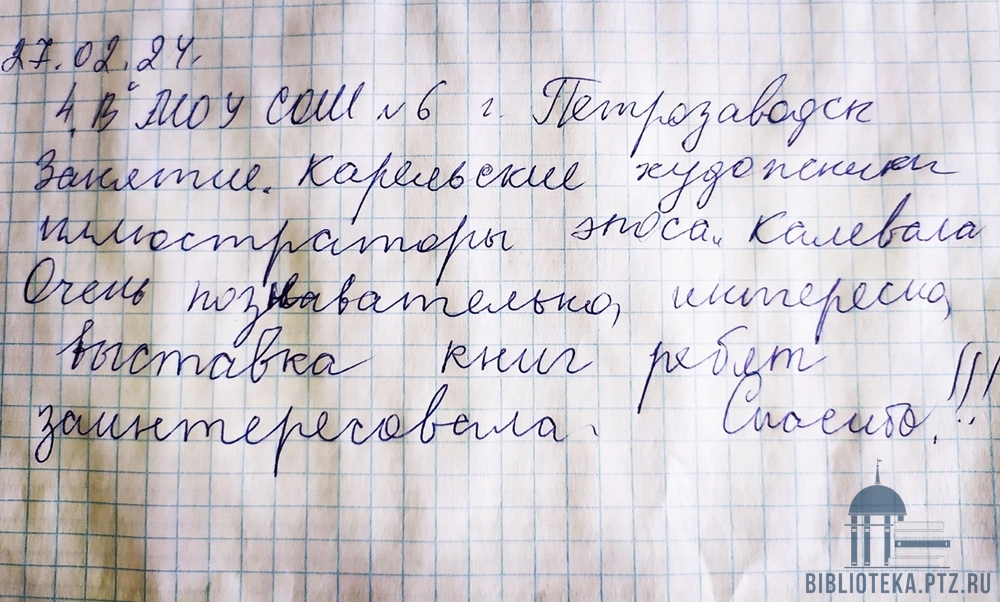 27.02.24.
4 "В" МОУ СОШ №6 г. Петрозаводск
Занятие. Карельские художники
иллюстраторы эпоса „Калевала
Очень познавательно, интересно,
выставка книг ребят
заинтересовала. Спасибо!!!
BIBLIOTEKA.PTZ.RU